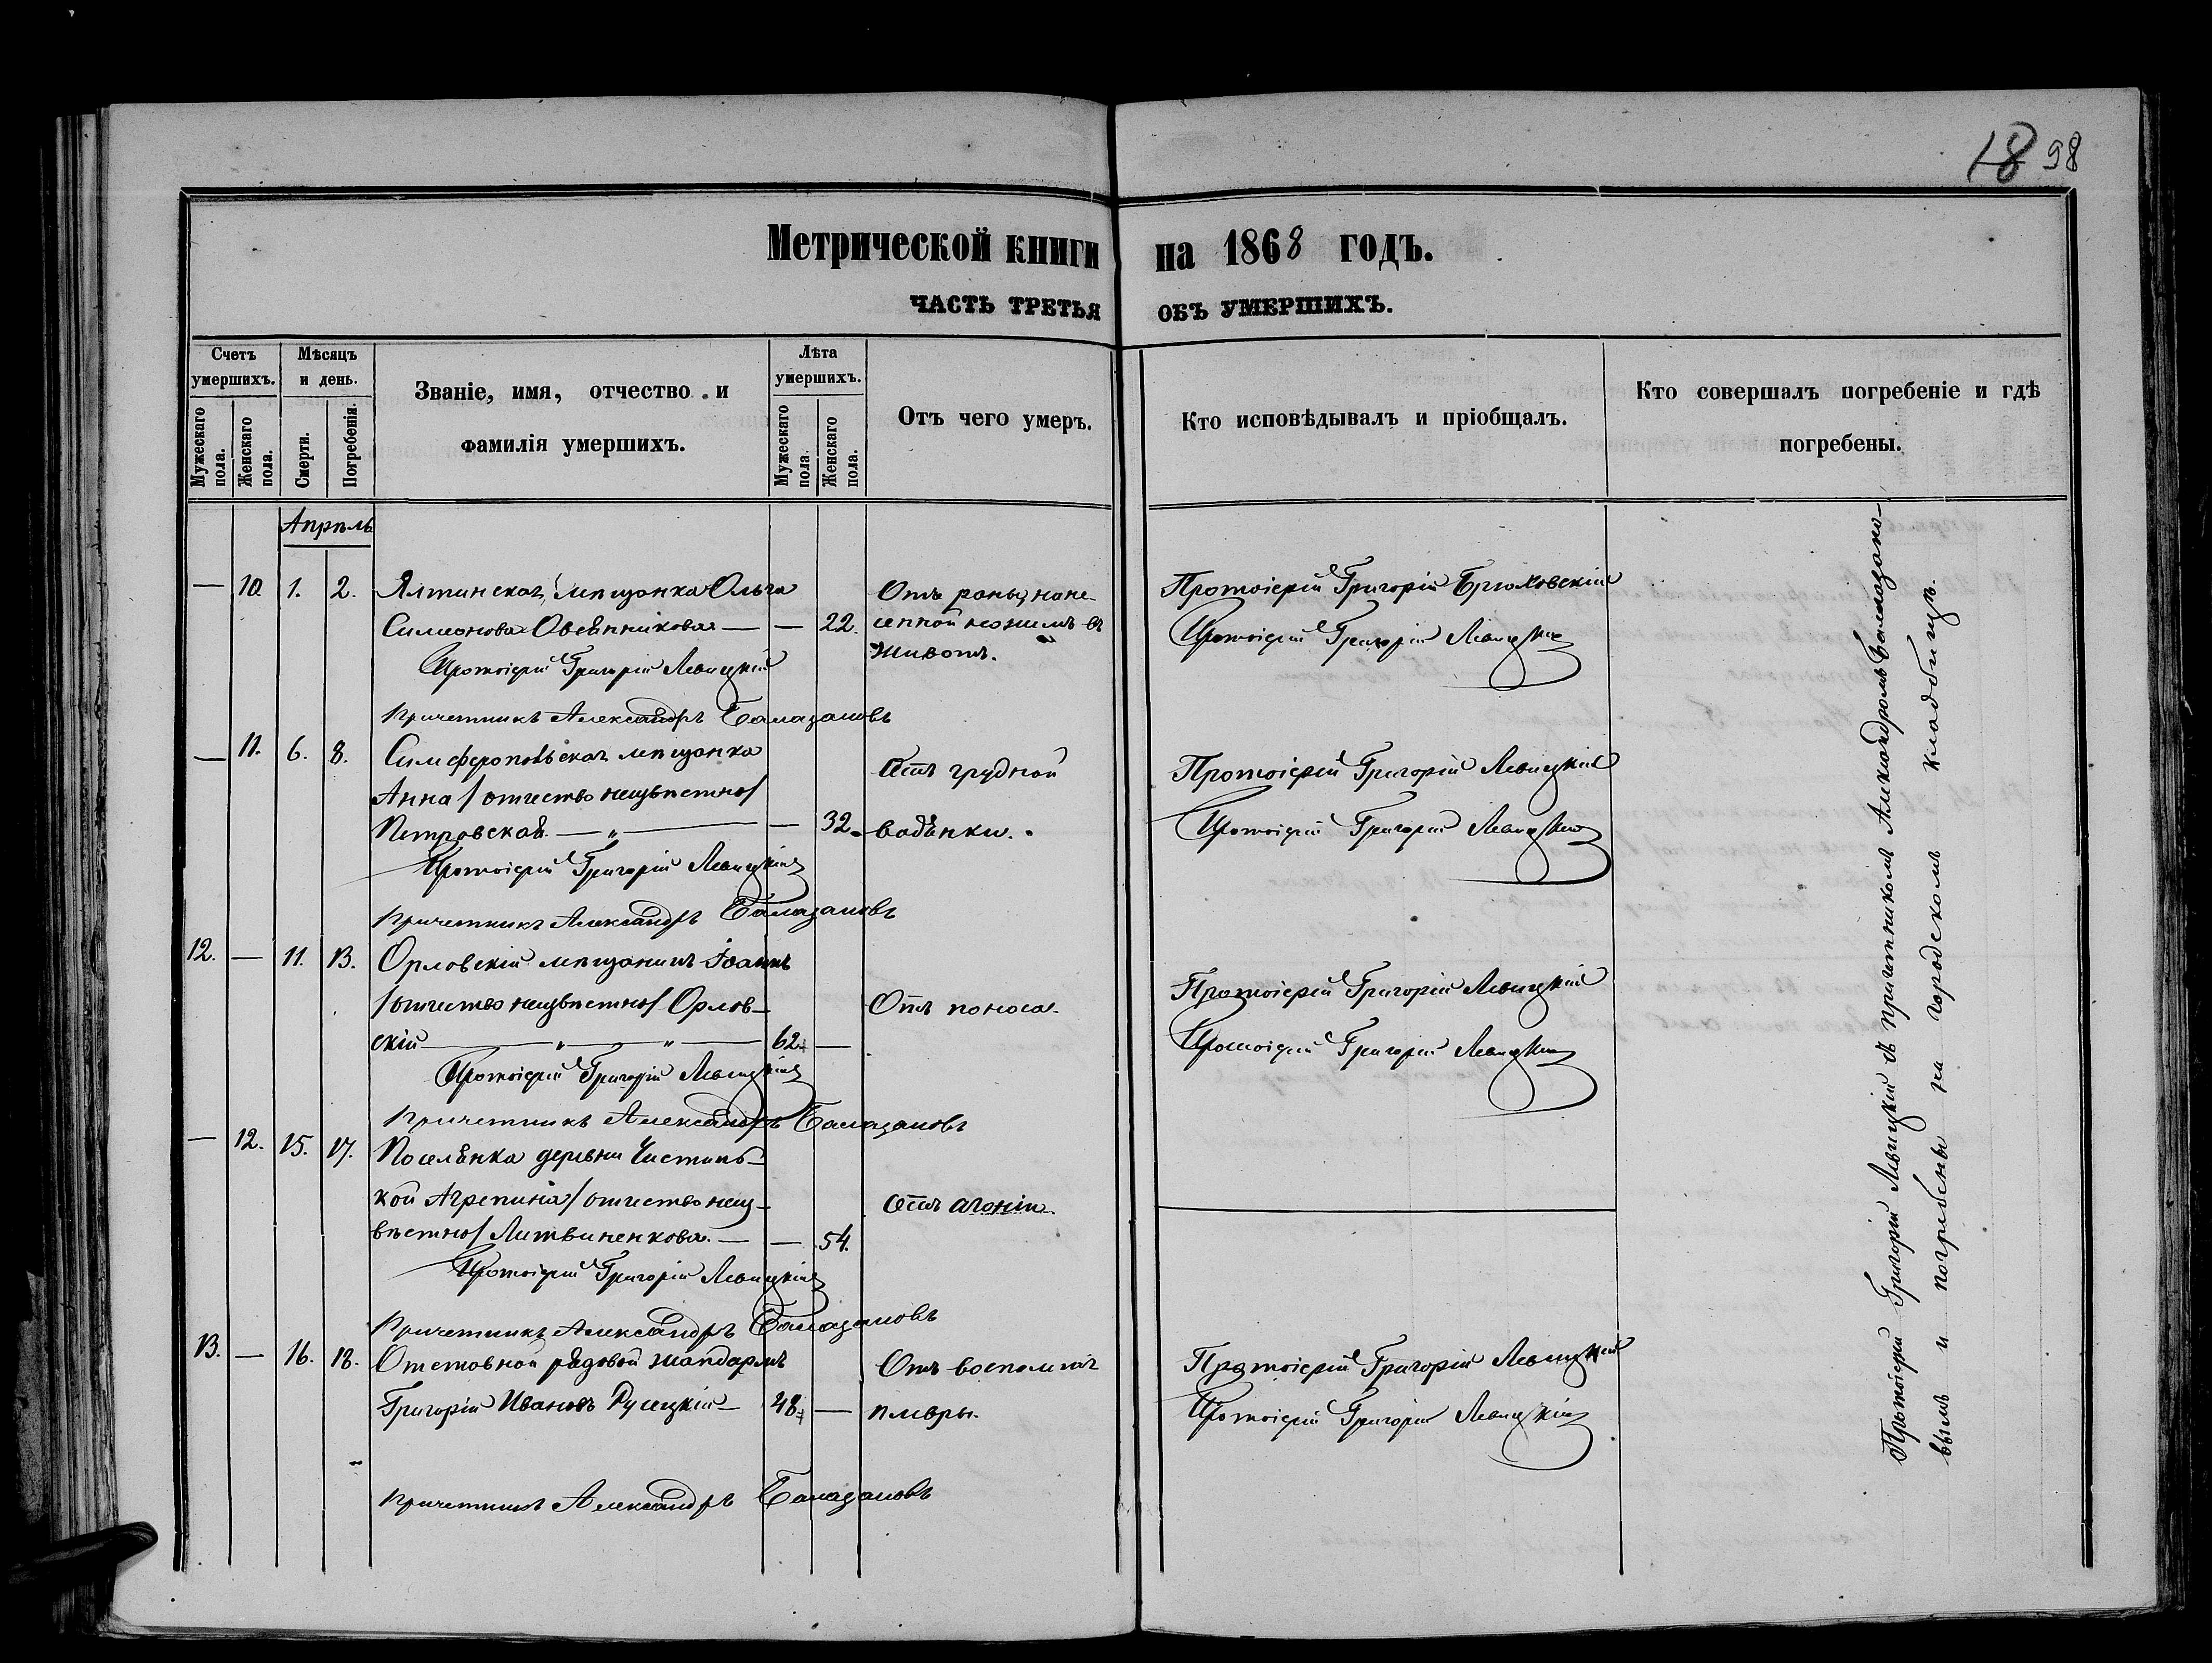 18 98
Метрической книги на 1868 годъ.
ЧАСТЬ ТРЕТЬЯ ОБЪ УМЕРШИХЪ.
Счетъ умершихъ.
Мужескаго пола.
Женскаго пола.
Мѣсяцъ и день.
Смерти.
Погребенія.
Званіе, имя, отчество и
фамилія умершихъ.
Лѣта умершихъ.
Мужескаго пола.
Женскаго пола.
Отъ чего умеръ.
Кто исповѣдывалъ и пріобщалъ.
Кто совершалъ погребеніе и гдѣ
погребены.
Апрѣль
— 10. 1. 2. Ялтинская мѣщанка Ольга Отъ раны, нане- Протоіерій Григорій Брюховскій
Симеонова Овсянникова — — 22. сенной ножемъ въ Протоіерій Григорій Левицкій
животъ.
Протоіерій Григорій Левицкій
Причетникъ Александръ Баладановъ
— 11. 6. 8. Симферопольская мѣщанка Отъ грудной Протоіерій Григорій Левицкій
Анна /отчество неизвѣстно/
Петровская — „ — — 32. водянки. Протоіерій Григорій Левицкій
Протоіерій Григорій Левицкій
Причетникъ Александръ Баладановъ
12. — 11. 13. Орловскій мѣщанинъ Іоаннъ Протоіерій Григорій Левицкій
/отчество неизвѣстно/ Орлов- Отъ поноса.
скій — „ — „ — 62. — Протоіерій Григорій Левицкій
Протоіерій Григорій Левицкій
Причетникъ Александръ Баладановъ
— 12. 15. 17. Поселянка деревни Чистинь-
кой Агрепина /отчество неиз- Отъ агоніи.
вѣстно/ Литвиненкова. — — 54.
Протоіерій Григорій Левицкій
Причетникъ Александръ Баладановъ
13. — 16. 18. Отставной рядовой жандармъ Отъ воспаленія Протоіерій Григорій Левицкій
Григорій Ивановъ Русецкій — 48. — плевры. Протоіерій Григорій Левицкій
Причетникъ Александръ Баладановъ
Протоіерій Григорій Левицкій съ причетникомъ Александромъ Баладано-
вымъ и погребены на городскомъ кладбищѣ.